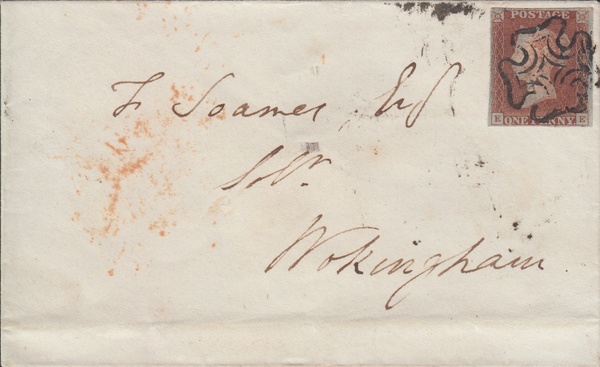 POSTAGE
E ONE PENNY E
F Soames Esq
Solr.
Wokingham